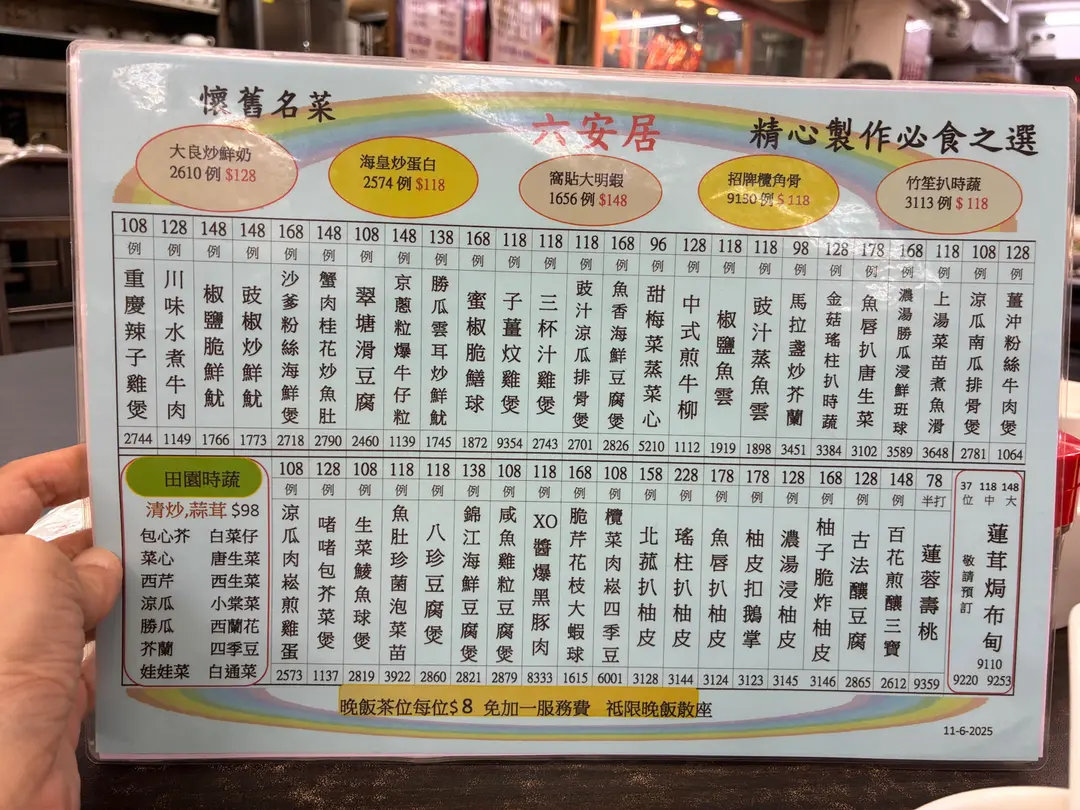 懷舊名菜
六安居
精心製作必食之選
大良炒鮮奶
2610 例 $128
海皇炒蛋白
2574 例 $118
窩貼大明蝦
1656 例 $148
招牌欖角骨
9130 例 $118
竹笙扒時蔬
3113 例 $118
108 例 重慶辣子雞煲 2744
128 例 川味水煮牛肉 1149
148 例 椒鹽脆鮮魷 1766
148 例 豉椒炒鮮魷 1773
168 例 沙爹粉絲海鮮煲 2718
148 例 蟹肉桂花炒魚肚 2790
108 例 翠塘滑豆腐 2460
148 例 京蔥粒爆牛仔粒 1139
138 例 勝瓜雲耳炒鮮魷 1745
168 例 蜜椒脆鱔球 1872
118 例 子薑炆雞煲 9354
118 例 三杯汁雞煲 2743
118 例 豉汁涼瓜排骨煲 2701
168 例 魚香海鮮豆腐煲 2826
96 例 甜梅菜蒸菜心 5210
128 例 中式煎牛柳 1112
118 例 椒鹽魚雲 1919
118 例 豉汁蒸魚雲 1898
98 例 馬拉盞炒芥蘭 3451
128 例 金菇瑤柱扒時蔬 3384
178 例 魚唇扒唐生菜 3102
168 例 濃湯勝瓜浸鮮班球 3589
118 例 上湯菜苗煮魚滑 3648
108 例 涼瓜南瓜排骨煲 2781
128 例 薑沖粉絲牛肉煲 1064
田園時蔬
清炒,蒜茸 $98
包心芥 白菜仔
菜心 唐生菜
西芹 西生菜
涼瓜 小棠菜
勝瓜 西蘭花
芥蘭 四季豆
娃娃菜 白通菜
108 例 涼瓜肉崧煎雞蛋 2573
128 例 啫啫包芥菜煲 1137
108 例 生菜鯪魚球煲 2819
118 例 魚肚珍菌泡菜苗 3922
118 例 八珍豆腐煲 2860
138 例 錦江海鮮豆腐煲 2821
108 例 咸魚雞粒豆腐煲 2879
118 例 XO醬爆黑豚肉 8333
168 例 脆芹花枝大蝦球 1615
108 例 欖菜肉崧四季豆 6001
158 例 北菰扒柚皮 3128
228 例 瑤柱扒柚皮 3144
178 例 魚唇扒柚皮 3124
178 例 柚皮扣鵝掌 3123
128 例 濃湯浸柚皮 3145
168 例 柚子脆炸柚皮 3146
128 例 古法釀豆腐 2865
148 例 百花煎釀三寶 2612
78 半打 蓮蓉壽桃 9359
37 118 148
位 中 大
蓮茸焗布甸
敬請預訂
9110
9220 9253
晚飯茶位每位$8 免加一服務費 祗限晚飯散座
11-6-2025